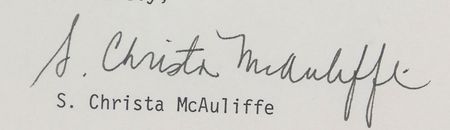 S. Christa McAuliffe
S. Christa McAuliffe